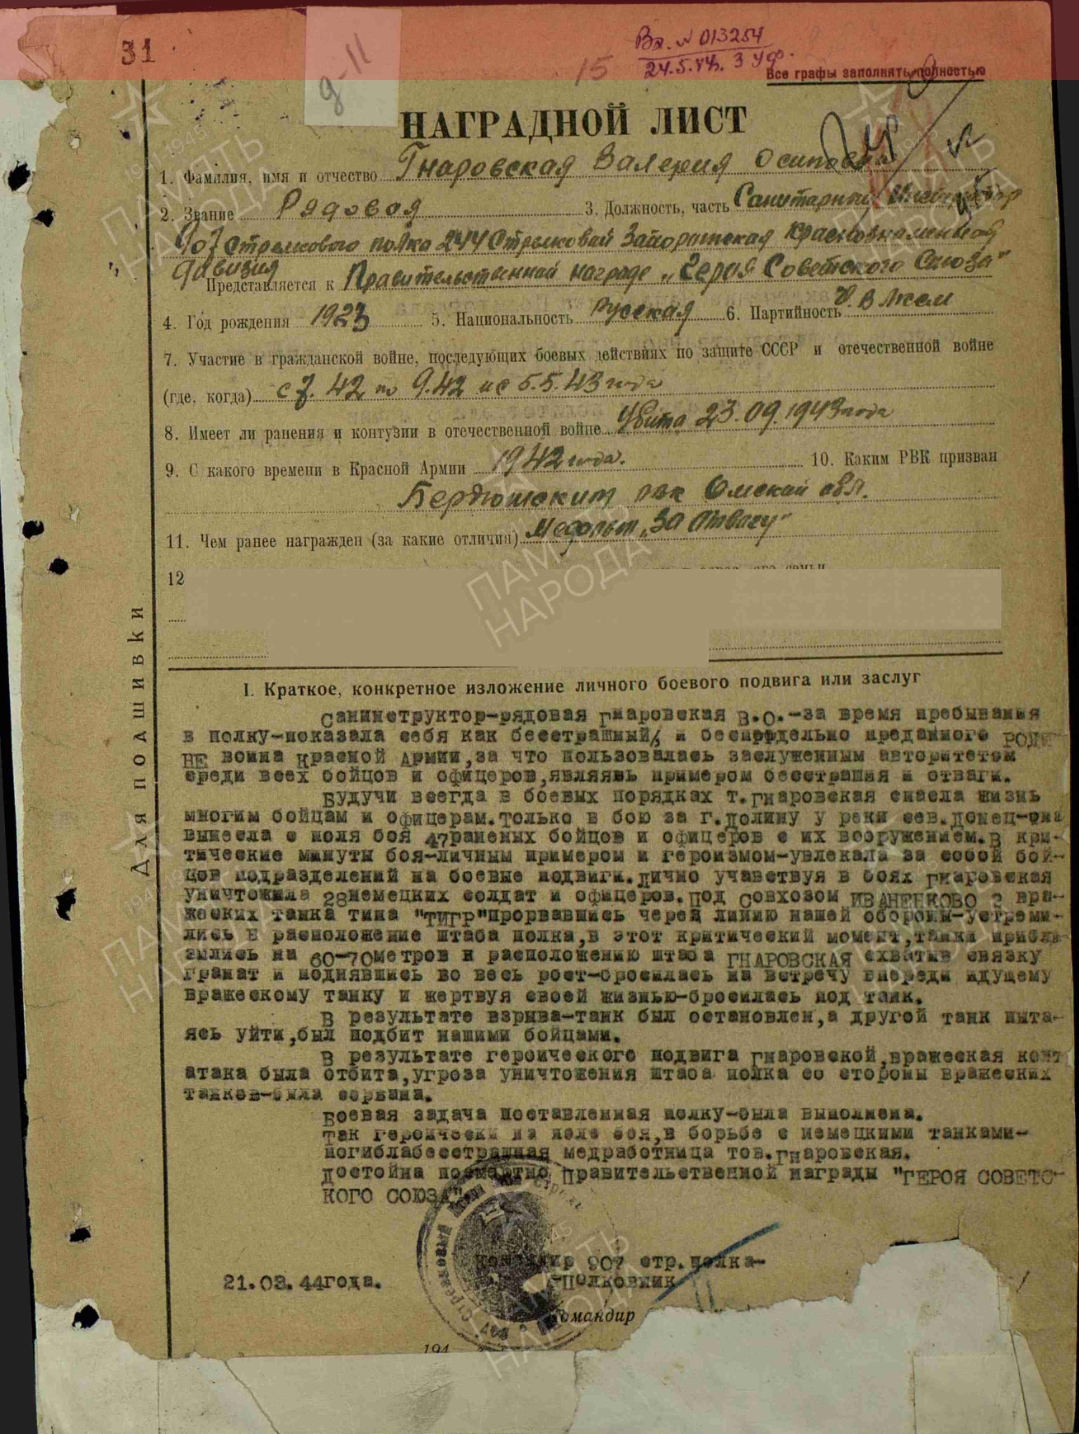 31
9-11
15
Вх. № 013254
24.5.44.
Все графы заполнять полностью
НАГРАДНОЙ ЛИСТ
1. Фамилия, имя и отчество Гнаровская Валерия Осиповна
2. Звание Рядовая 3. Должность, часть Санитарный Инструктор
907 стрелкового полка 244 Стрелковой Запорожской Краснознаменной
дивизия
Представляется к Правительственной награде „Героя Советского Союза"
4. Год рождения 1923 5. Национальность Русская 6. Партийность Ч. ВЛКСМ
7. Участие в гражданской войне, последующих боевых действиях по защите СССР и отечественной войне
(где, когда) с 7.42 по 9.42 и с 5.5.43 года
8. Имеет ли ранения и контузии в отечественной войне Убита 23.09.1943 года
9. С какого времени в Красной Армии 1942 года. 10. Каким РВК призван
Бердюжским рвк Омской обл.
11. Чем ранее награжден (за какие отличия) Медалью „За Отвагу"
12
Для подшивки
I. Краткое, конкретное изложение личного боевого подвига или заслуг
Санинструктор-рядовая Гнаровская В.О.-за время пребывания
в полку-показала себя как бесстрашный, и беспредельно преданного РОДИ-
НЕ воина Красной Армии, за что пользовалась заслуженным авторитетом
среди всех бойцов и офицеров, являясь примером бесстрашия и отваги.
Будучи всегда в боевых порядках т.Гнаровская спасла жизнь
многим бойцам и офицерам. Только в бою за г.Долину у реки сев.Донец-она
вынесла с поля боя 47раненых бойцов и офицеров с их вооружением. В кри-
тические минуты боя-личным примером и героизмом-увлекала за собой бой-
цов подразделений на боевые подвиги. Лично учавствуя в боях Гнаровская
уничтожила 28немецких солдат и офицеров. Под совхозом ИВАНЕНКОВО 2 вра-
жеских танка типа "ТИГР"прорвавшись через линию нашей обороны-устреми-
лись в расположение штаба полка, в этот критический момент, танки прибли
зились на 60-70метров к расположению штаба ГНАРОВСКАЯ схватив связку
гранат и поднявшись во весь рост-бросилась на встречу впереди идущему
вражескому танку и жертвуя своей жизнью-бросилась под танк.
В результате взрыва-танк был остановлен, а другой танк пыта-
ясь уйти, был подбит нашими бойцами.
В результате героического подвига Гнаровской, вражеская конт
атака была отбита, угроза уничтожения штаба полка со стороны вражеских
танков-была сорвана.
Боевая задача поставленная полку-была выполнена.
Так героически на поле боя, в борьбе с немецкими танками-
погиблабесстрашная медработница тов.Гнаровская.
Достойна посмертно Правительственной награды "ГЕРОЯ СОВЕТС-
КОГО СОЮЗА".
Командир 907 стр.полка-
21.03.44года. -Полковник
Командир
194